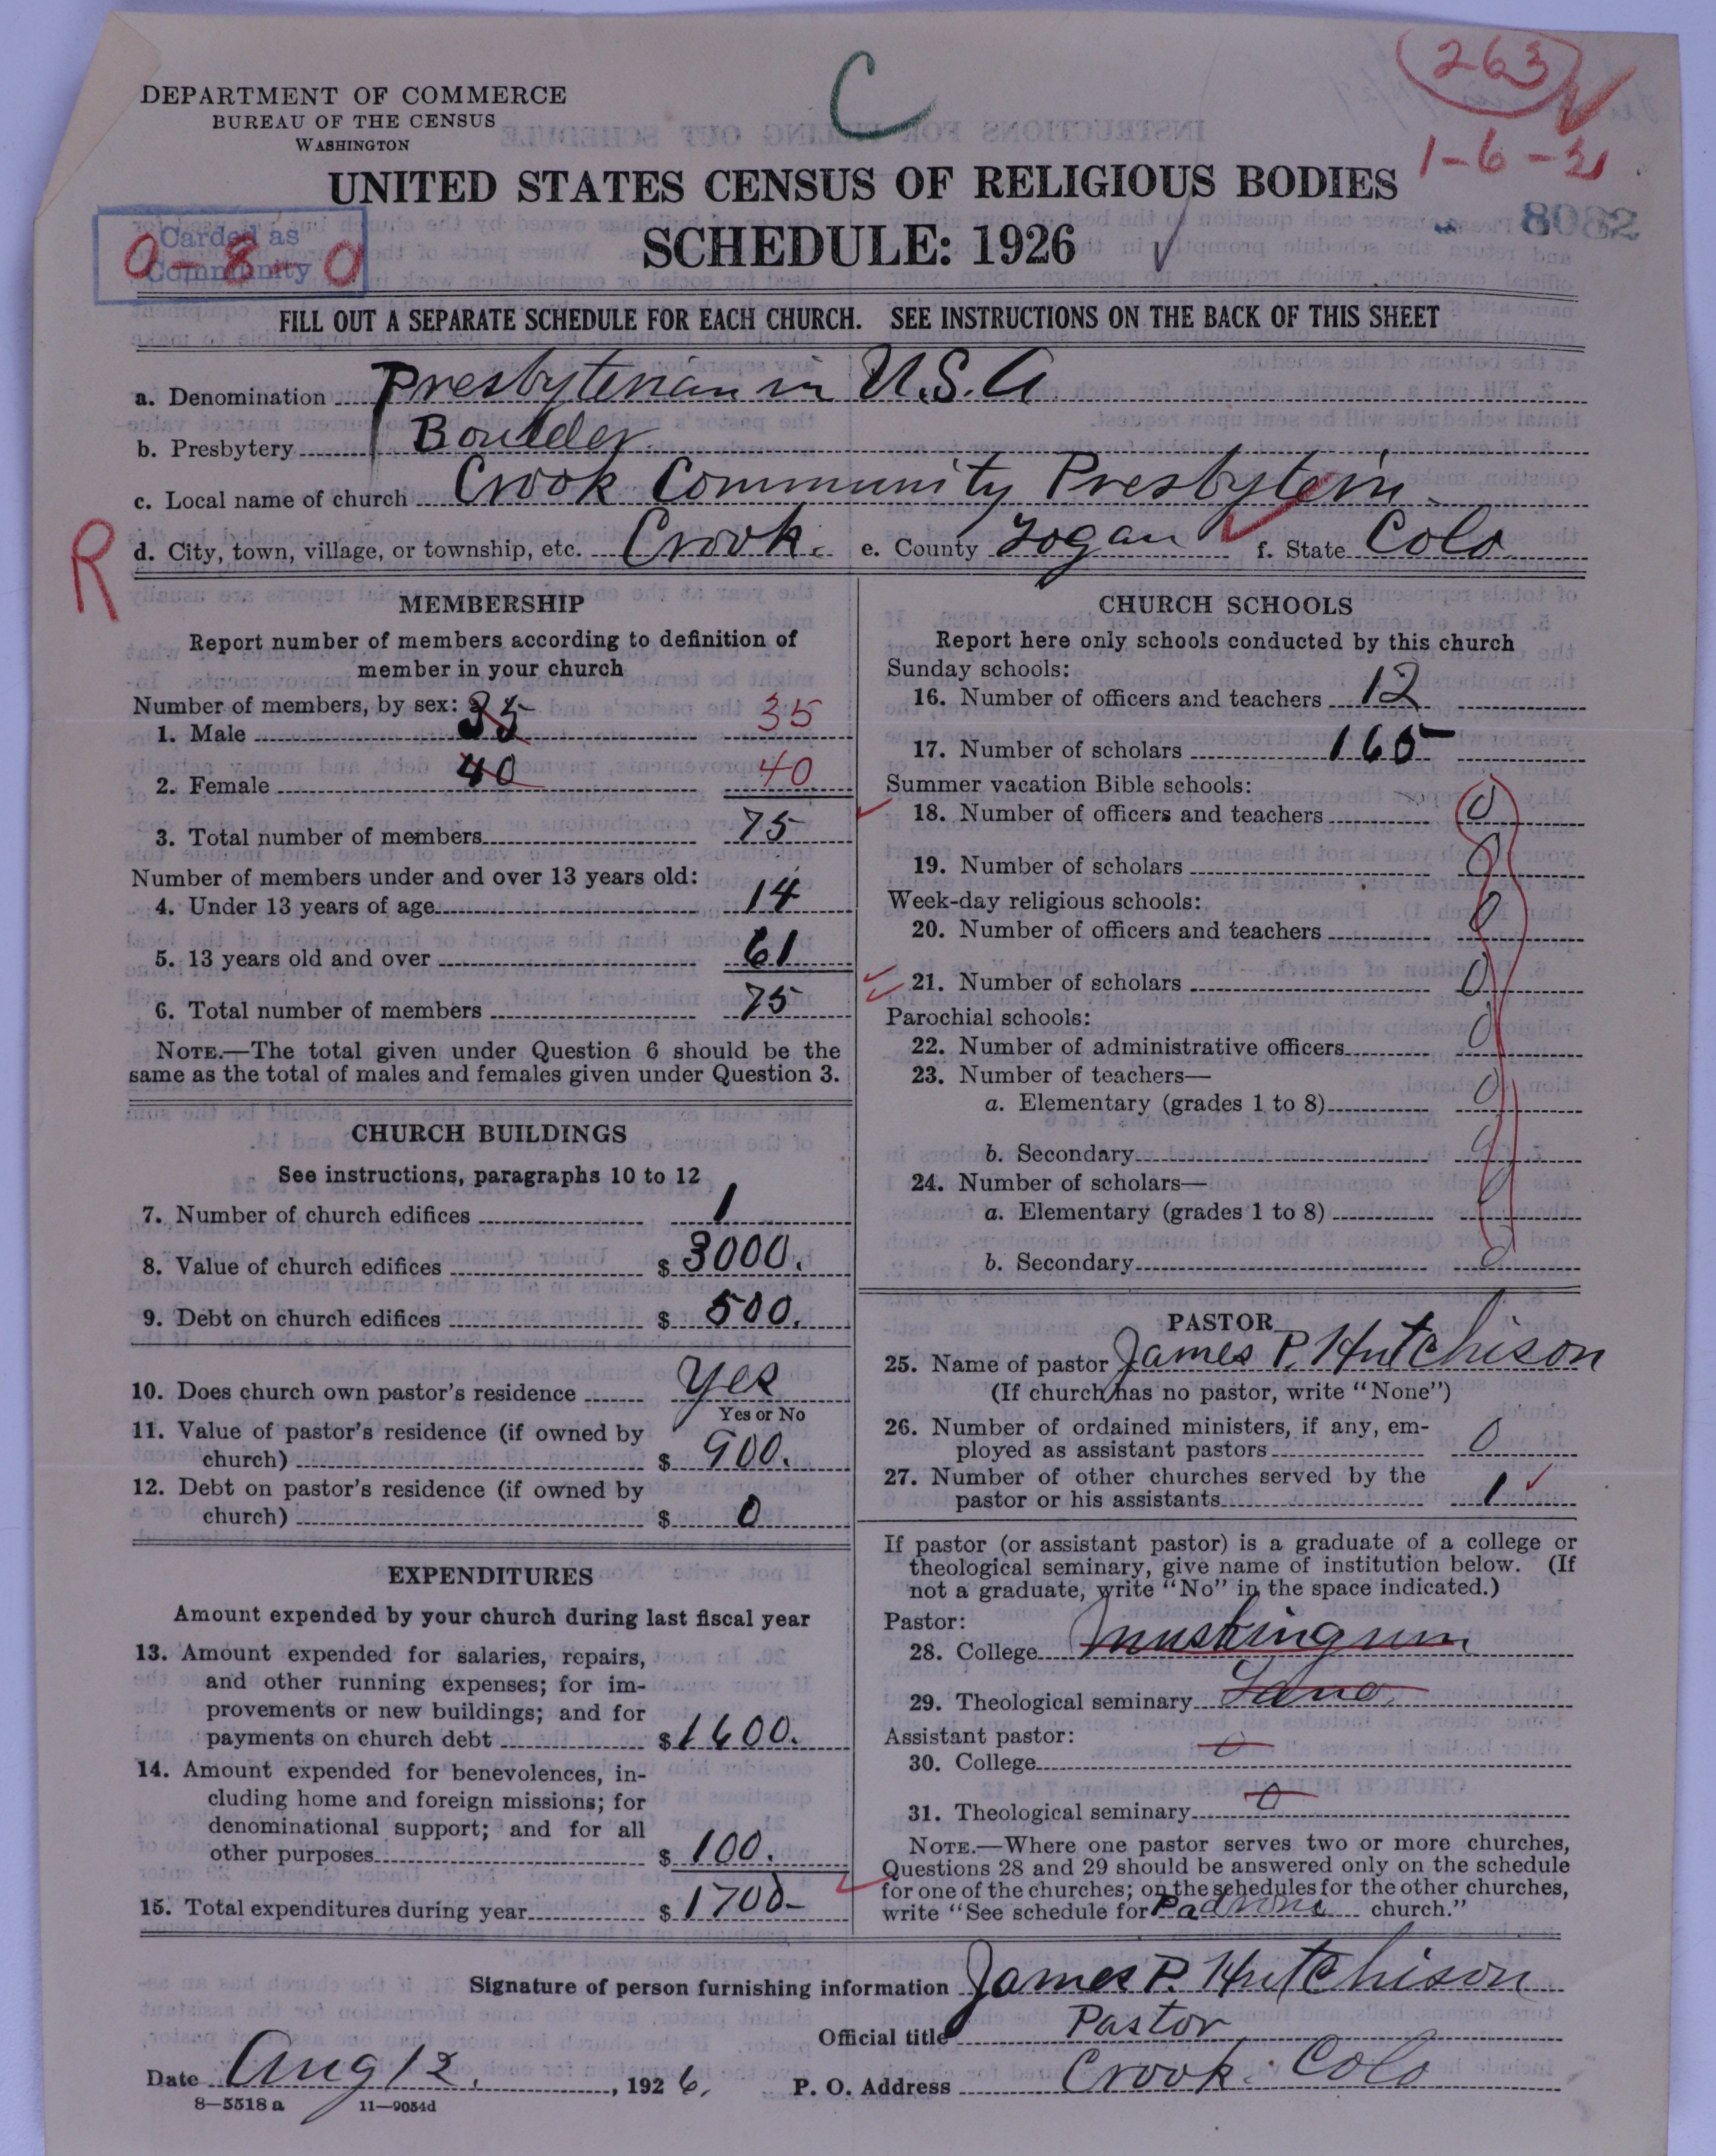 263
C
1-6-2
DEPARTMENT OF COMMERCE
BUREAU OF THE CENSUS
WASHINGTON
UNITED STATES CENSUS OF RELIGIOUS BODIES
SCHEDULE: 1926
Carded as
Community
0-8-0
FILL OUT A SEPARATE SCHEDULE FOR EACH CHURCH. SEE INSTRUCTIONS ON THE BACK OF THIS SHEET
a. Denomination Presbyterian in U.S.A
b. Presbytery Boulder
c. Local name of church Crook Community Presbytein.
R
d. City, town, village, or township, etc. Crook. e. County Logan f. State Colo
MEMBERSHIP
Report number of members according to definition of
member in your church
Number of members, by sex:
1. Male 35 35
2. Female 40 40
3. Total number of members 75
Number of members under and over 13 years old:
4. Under 13 years of age 14
5. 13 years old and over 61
6. Total number of members 75
NOTE.—The total given under Question 6 should be the
same as the total of males and females given under Question 3.
CHURCH BUILDINGS
See instructions, paragraphs 10 to 12
7. Number of church edifices 1
8. Value of church edifices $ 3000.
9. Debt on church edifices $ 500.
10. Does church own pastor's residence Yes
Yes or No
11. Value of pastor's residence (if owned by
church) $ 900.
12. Debt on pastor's residence (if owned by
church) $ 0
EXPENDITURES
Amount expended by your church during last fiscal year
13. Amount expended for salaries, repairs,
and other running expenses; for im-
provements or new buildings; and for
payments on church debt $ 1600.
14. Amount expended for benevolences, in-
cluding home and foreign missions; for
denominational support; and for all
other purposes $ 100.
15. Total expenditures during year $ 1700-
CHURCH SCHOOLS
Report here only schools conducted by this church
Sunday schools:
16. Number of officers and teachers 12
17. Number of scholars 165
Summer vacation Bible schools:
18. Number of officers and teachers 0
19. Number of scholars 0
Week-day religious schools:
20. Number of officers and teachers 0
21. Number of scholars 0
Parochial schools:
22. Number of administrative officers 0
23. Number of teachers—
a. Elementary (grades 1 to 8) 0
b. Secondary 0
24. Number of scholars—
a. Elementary (grades 1 to 8) 0
b. Secondary 0
PASTOR
25. Name of pastor James P. Hutchison
(If church has no pastor, write "None")
26. Number of ordained ministers, if any, em-
ployed as assistant pastors 0
27. Number of other churches served by the
pastor or his assistants 1
If pastor (or assistant pastor) is a graduate of a college or
theological seminary, give name of institution below. (If
not a graduate, write "No" in the space indicated.)
Pastor:
28. College Muskingum
29. Theological seminary Lane
Assistant pastor:
30. College 0
31. Theological seminary 0
NOTE.—Where one pastor serves two or more churches,
Questions 28 and 29 should be answered only on the schedule
for one of the churches; on the schedules for the other churches,
write "See schedule for Padroni church."
Signature of person furnishing information James P. Hutchison
Official title Pastor
Date Aug 12, 1926. P. O. Address Crook. Colo
8—5518 a 11—9054d